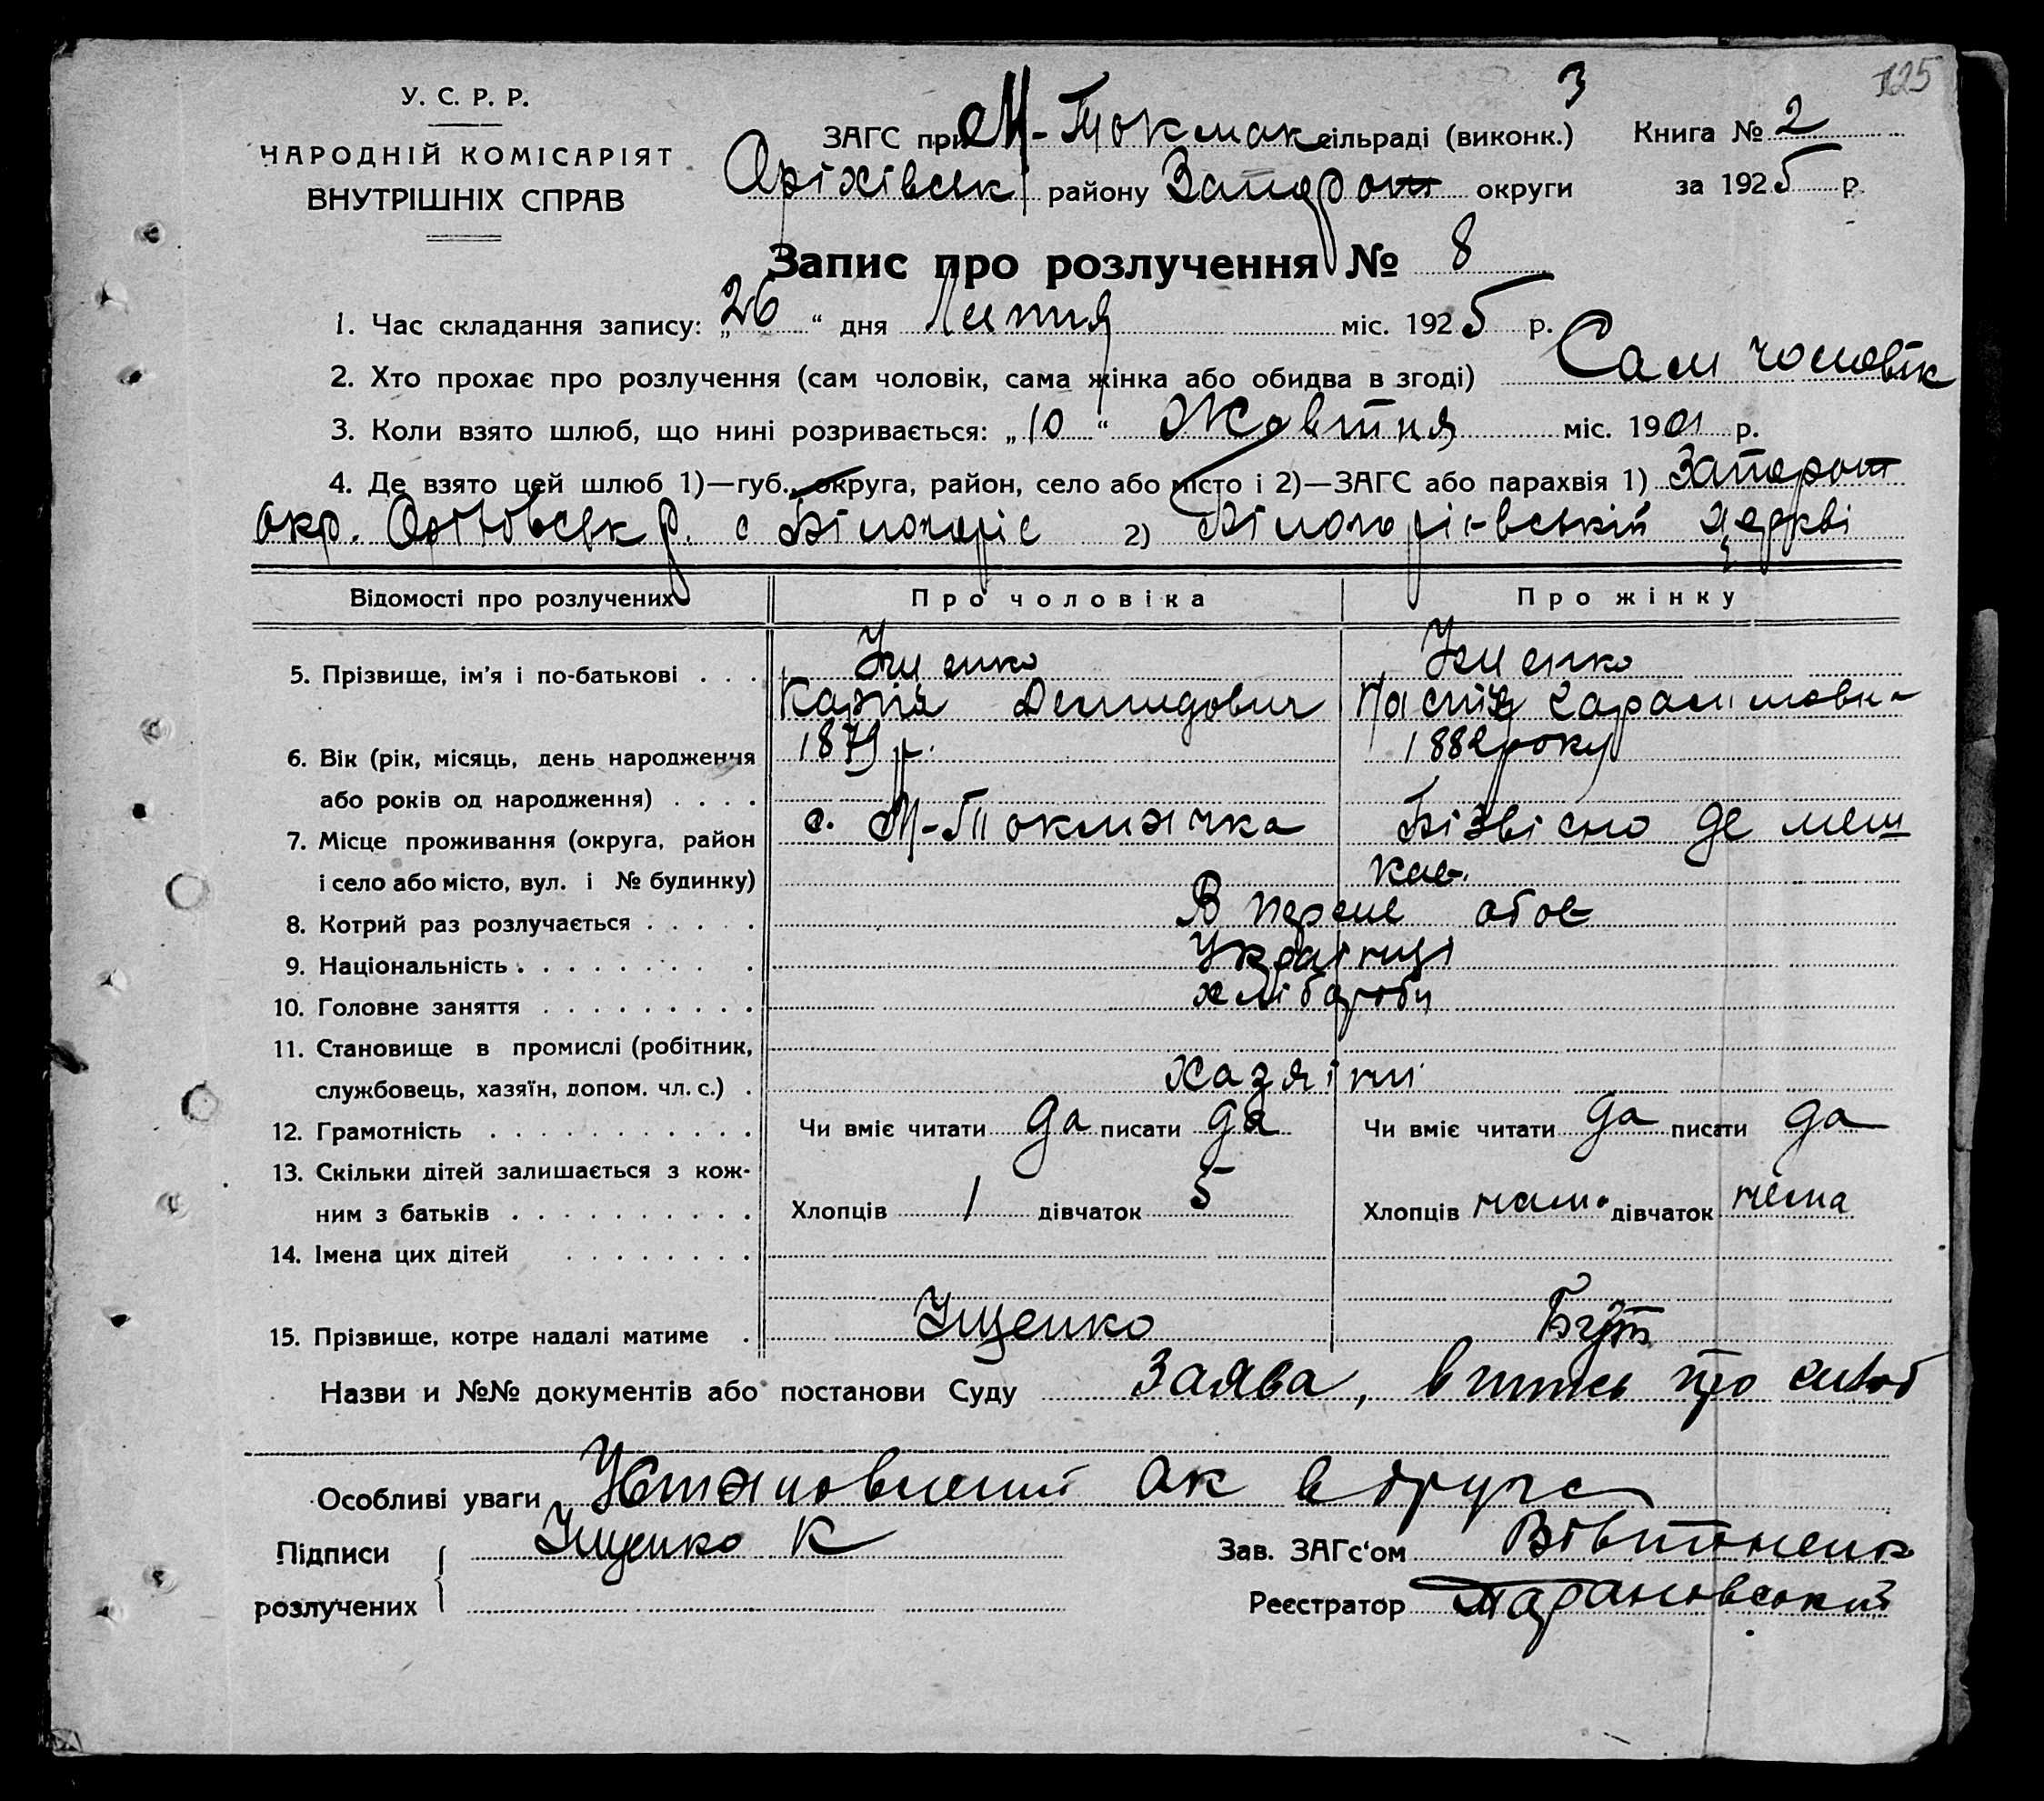 125
3
У. С. Р. Р.
НАРОДНІЙ КОМІСАРІЯТ
ВНУТРІШНІХ СПРАВ
ЗАГС при М-Токмак сільраді (виконк.) Книга № 2
Оріхівськ району Запорож округи за 1925 р.
Запис про розлучення № 8
1. Час складання запису: „26“ дня Липня міс. 1925 р.
2. Хто прохає про розлучення (сам чоловік, сама жінка або обидва в згоді) Сам чоловік
3. Коли взято шлюб, що нині розривається: „10“ Жовтня міс. 1901 р.
4. Де взято цей шлюб 1)—губ., округа, район, село або місто і 2)—ЗАГС або парахвія 1)
окр. р. с 2) церкві
Відомості про розлучених Про чоловіка Про жінку
5. Прізвище, ім'я і по-батькові . . . Іщенко Іщенко
Демидович
6. Вік (рік, місяць, день народження 1879 р. 1882 року
або років од народження) . . . .
7. Місце проживання (округа, район с. М-Токмачка Бізвісно де меш
і село або місто, вул. і № будинку) кає.
8. Котрий раз розлучається . . . . . В перше обоє
9. Національність . . . . . . . . . Українці
10. Головне заняття . . . . . . . . . хлібороби
11. Становище в промислі (робітник,
службовець, хазяїн, допом. чл. с.) . Хазяіни
12. Грамотність . . . . . . . . . . . Чи вміє читати да писати да Чи вміє читати да писати да
13. Скільки дітей залишається з кож-
ним з батьків . . . . . . . . . . Хлопців 1 дівчаток 5 Хлопців дівчаток нема
14. Імена цих дітей . . . . . . . .
15. Прізвище, котре надалі матиме . Іщенко Бут
Назви и №№ документів або постанови Суду Заява, про
Особливі уваги
Підписи Іщенко К Зав. ЗАГс'ом
розлучених Реєстратор